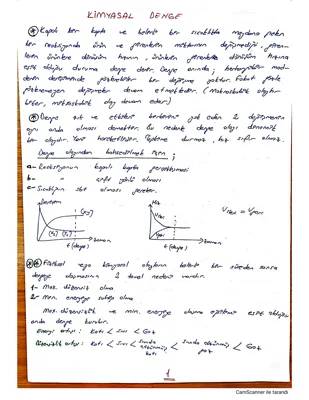 KİMYASAL DENGE
Kapalı bir kapta ve belirli bir sıcaklıkta meydana gelen
bir reaksiyonda ürün ve girenlerin miktarının değişmediği, giren-
lerin ürünlere dönüşüm hızının, ürünlerin girenlere dönüşüm hızına
eşit olduğu duruma denge denir. Denge anında;
derişiminde gözlenebilir bir değişme yoktur. Fakat gözle
görünmeyen değişmeler devam etmektedir. (Makroskobik olaylar
biter, mikroskobik olay devam eder)
Denge zıt ve etkileri birbirine eşit olan 2 değişmenin
aynı anda olması demektir. Bu nedenle denge olayı dinamik
bir olaydır. Tepkime durmaz, hız sıfır olmaz.
Denge olayından bahsedilmek için;
a- Reaksiyonun kapalı kapta
b- " çift yönlü olması
c- Sıcaklığın sbt olması gerekir.
derişim
Hız
zaman
t (denge)
zaman
t (denge)
Fiziksel veya kimyasal olayların belirli bir süreden sonra
dengeye ulaşmasının 2 temel nedeni vardır.
1- Max. düzensiz olma
2- Min. enerjiye sahip olma
Max. düzensizlik ve min. enerjiye olma eğilimi eşit olduğu
anda denge kurulur.
Enerji artışı: Katı < Sıvı < Gaz
Düzensizlik artışı: Katı < Sıvı < Sıvıda çözünmüş katı < Sıvıda çözünmüş gaz < Gaz
1
CamScanner ile tarandı